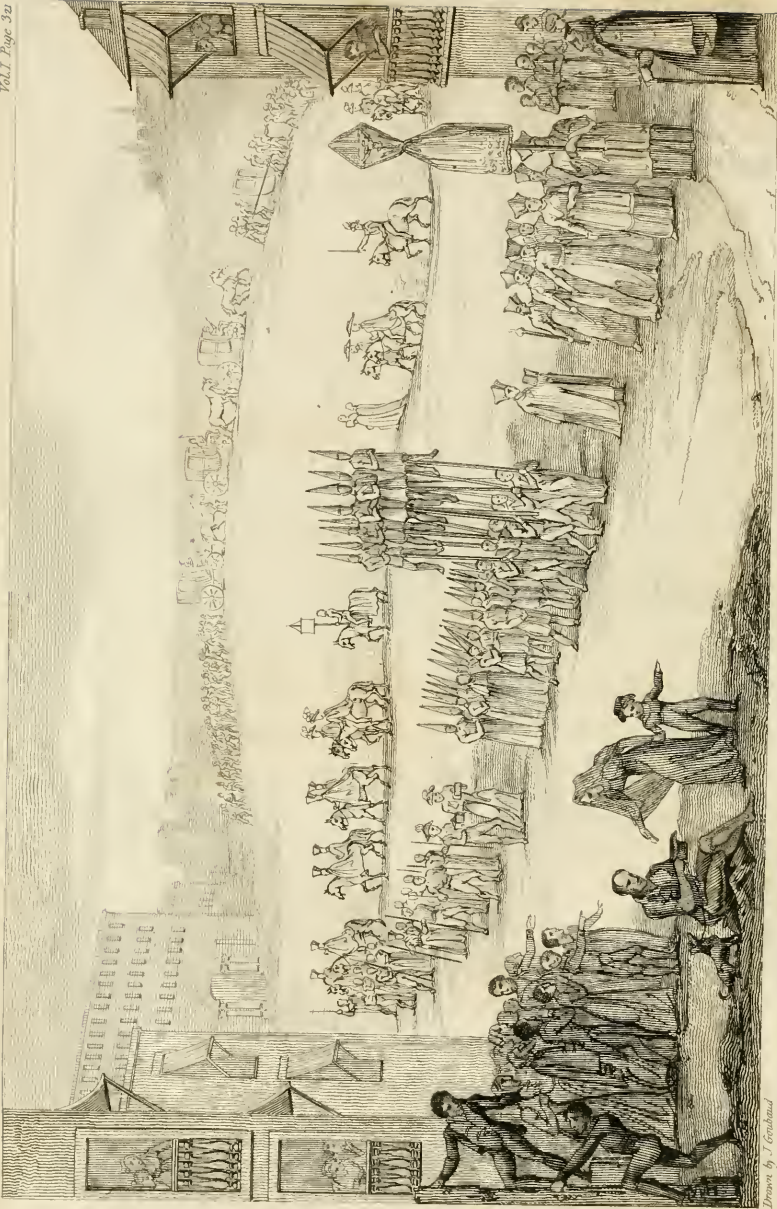 Vol. I Page 321
Drawn by J Goubaud